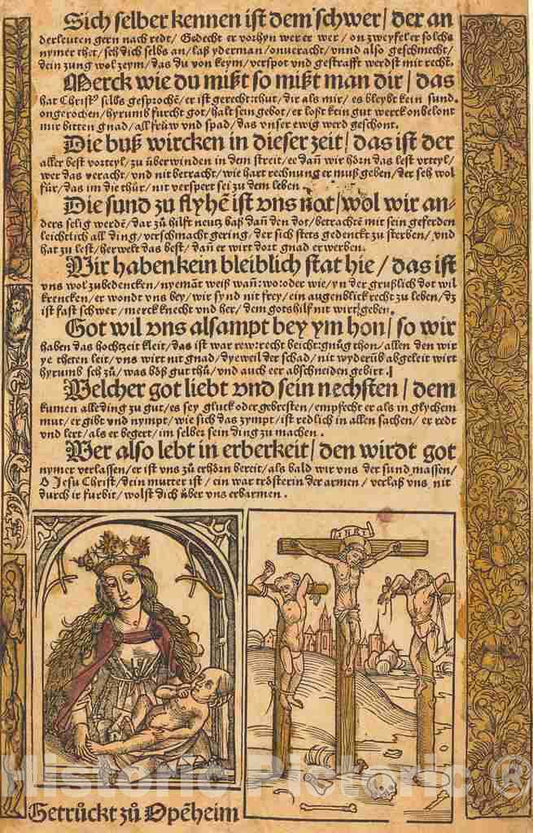 Sich selber kennen ist dem schwer / der an
derleuten gern nach redt / Gedecht er vorhyn wer er wer / on zweyfel er solchs
nymer thet / seh dich selbs an / laß yderman / onveracht / vnnd also geschmecht /
dein zung wol zeym / das du von keym / verspot vnd gestrafft werdst mit recht.
Merck wie du mißt so mißt man dir / das
hat Christ9 selbs gesprochē / er ist gerecht : thut / dir als mir / es bleybt kein sund.
ongerochen / hyrumb furcht got / halt sein gebot / er loßt kein gut werck onbelont
mir bitten gnad / all früw vnd spad / das vnser ewig werd geschont.
Die buß wircken in dieser zeit / das ist der
aller best vorteyl / zu überwinden in dem streit / er dañ wir hörn das lest vrteyl /
wer das veracht / vnd nit betracht / wie hart rechnung er muß geben / der seh wol
für / das im die thür / nit verspert sei zu dem leben
Die sund zu flyhē ist vns not / wol wir an-
ders selig werdē / dar zu hilft neutz baß dañ den dot / betrachtē mit sein geferden
leichtlich all ding / verschmacht gering / der sich stets gedenckt zu sterben / vnd
hat zu lest / her welt das best / dañ er wirt dort gnad erwerben.
Wir haben kein bleiblich stat hie / das ist
vns wol zubedencken / nyemāt weiß wañ : wo : oder wie / yn der grußlich dot wil
krencken / er wondt vns bey / wir synd nit frey / ein augenblick recht zu leben / dz
ist fast schwer / merck knecht vnd her / dem gots hilf nit wirt geben.
Got wil vns alsampt bey ym hon / so wir
haben das hochzeit kleit / das ist war rew : recht beicht : gnüg thon / allen den wir
ye theten leit / vns wirt nit gnad / dyeweil der schad / nit wyderüb abgeleit wirt
hyrumb seh zü / was böß gut thü / vnd auch eer abschneiden gebirt.
Welcher got liebt vnd sein nechsten / dem
kumen alle ding zu gut / es sey gluck oder gebresten / empfecht er als in glychem
mut / er gibt vnd nympt / wie sich das zympt / ist redlich in allen sachen / er redt
vnd lert / als er begert / im selber sein ding zu machen.
Wer also lebt in erberkeit / den wirdt got
nymer verlassen / er ist vns zu erhörn bereit / als bald wir vns der sund massen /
O Jesu Christ / dein mutter ist / ein war trösterin der armen / verlaß vns nit
durch ir furbit / wolst dich über vns erbarmen.
INRI
Getrückt zů Opēheim
Historic Pictoric ®